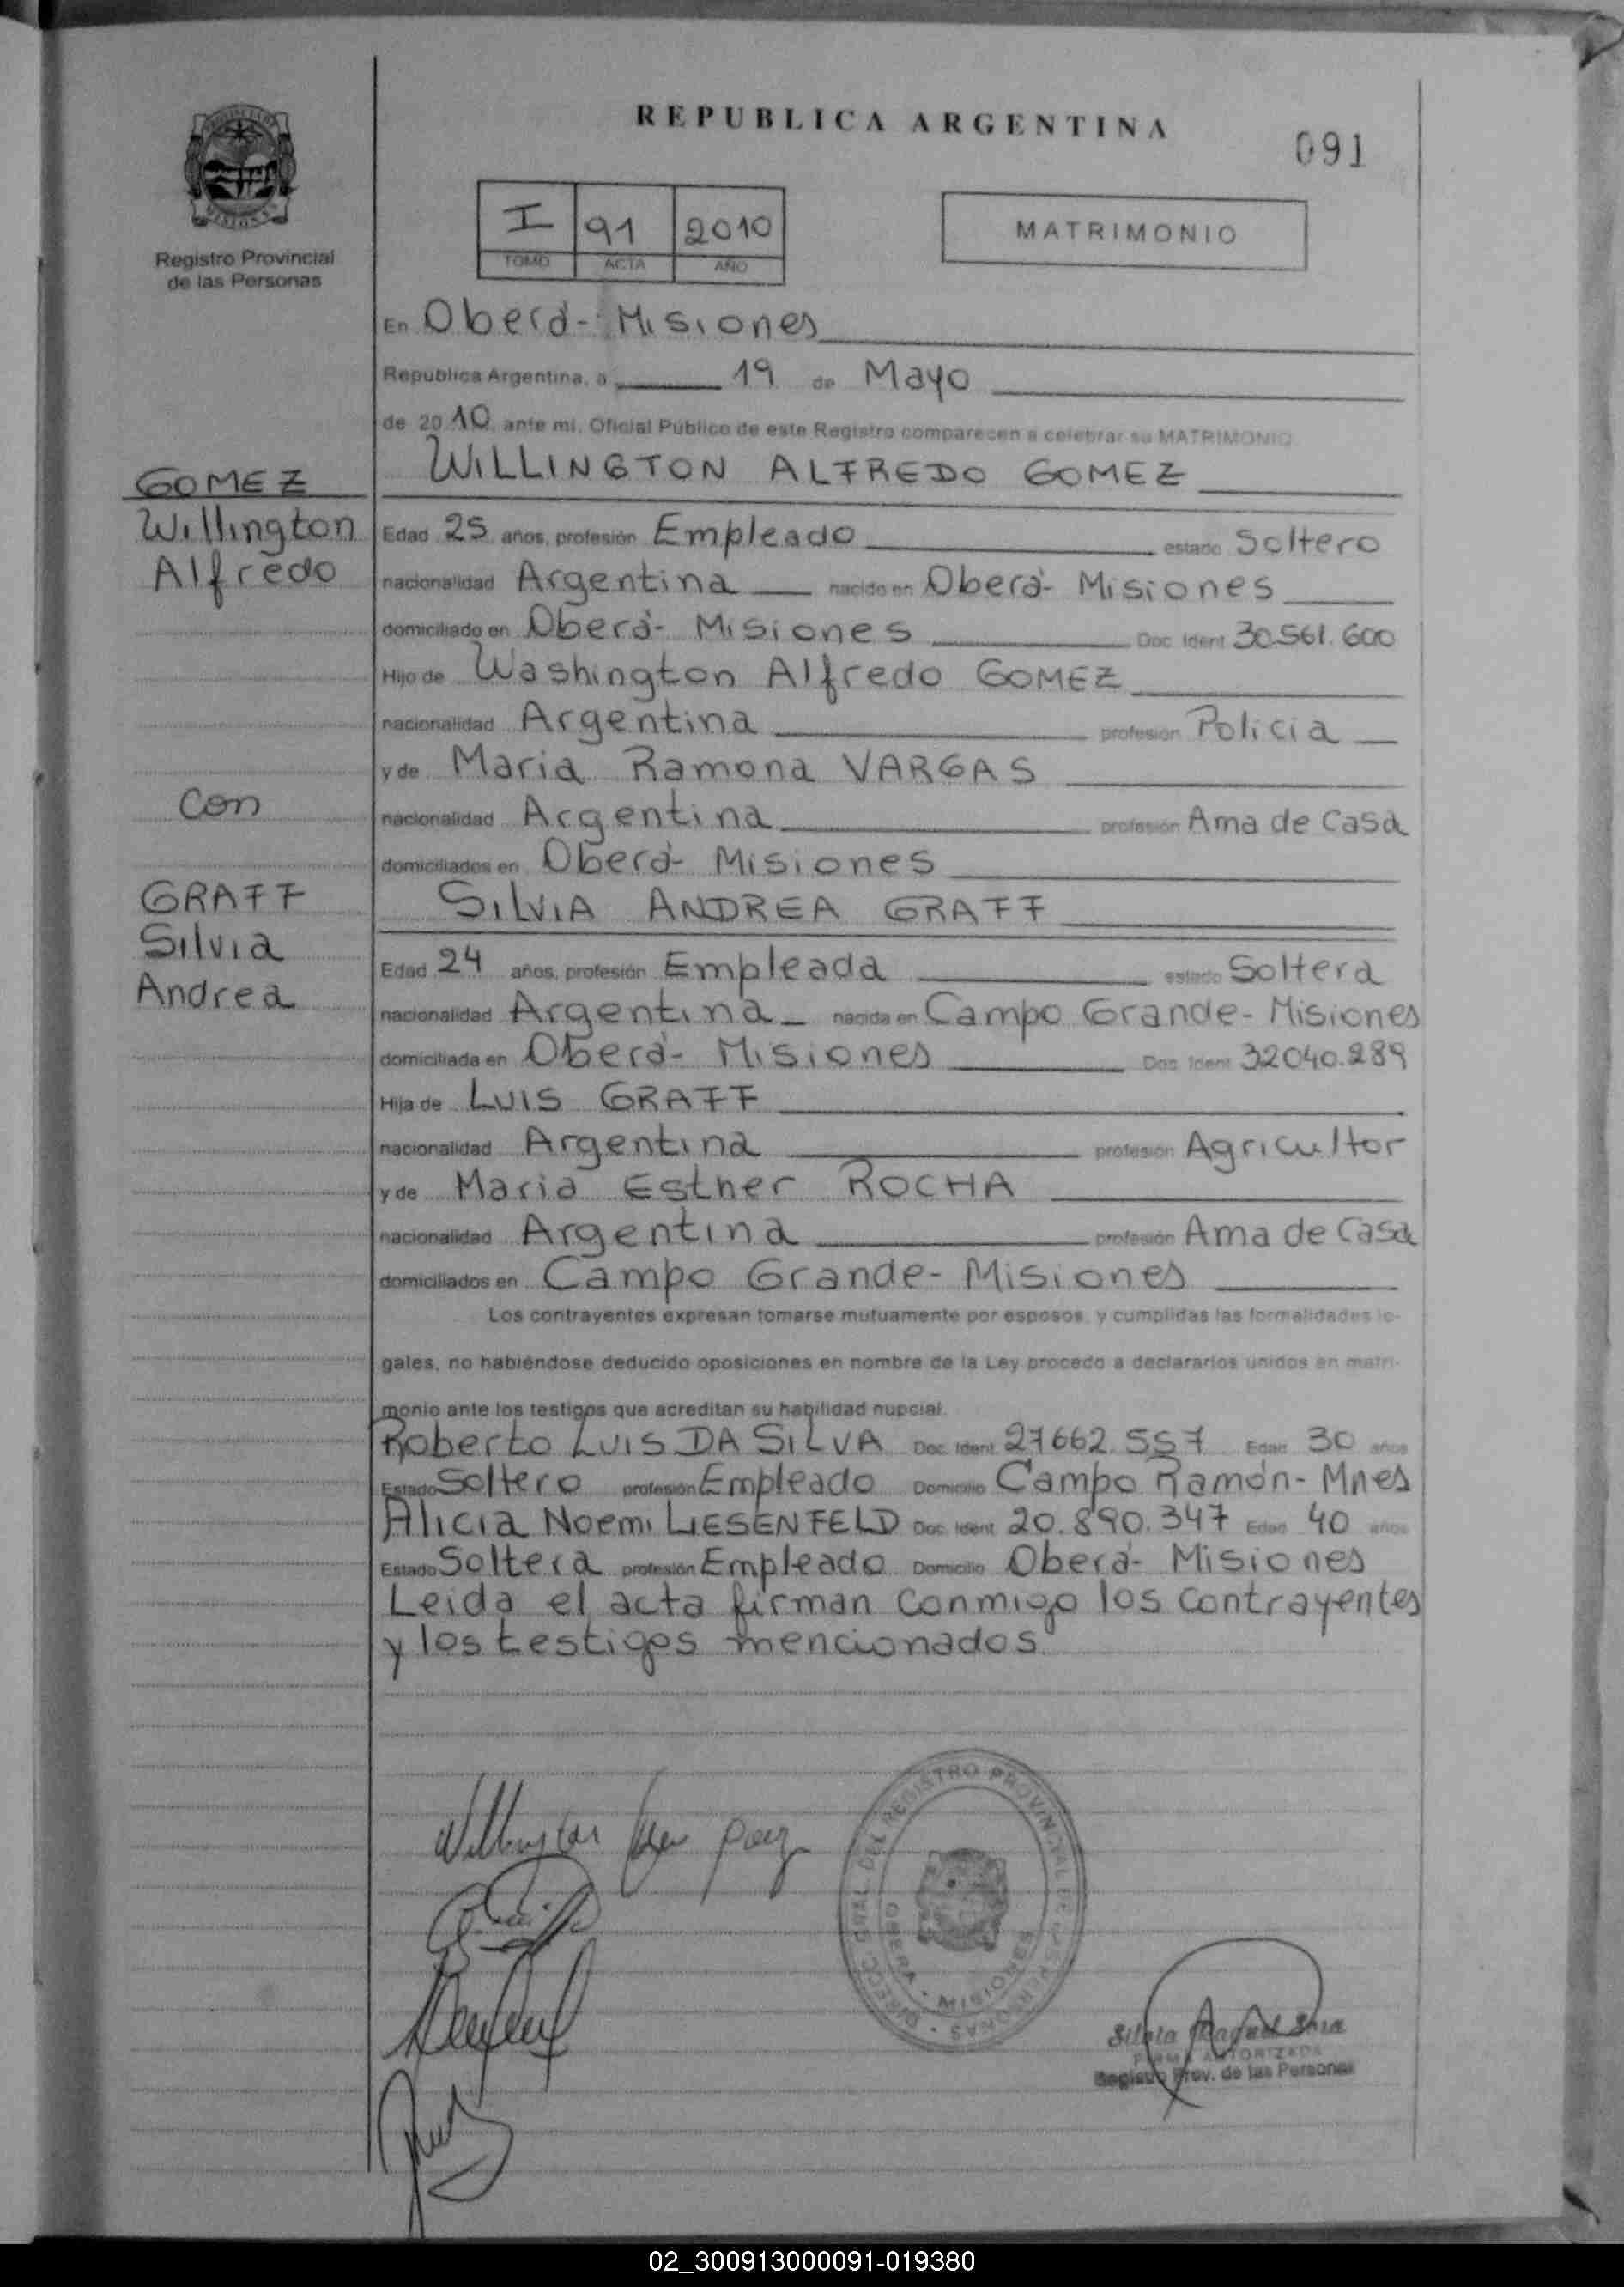 REPUBLICA ARGENTINA
091
PROVINCIA DE MISIONES
Registro Provincial
de las Personas
I 91 2010
TOMO ACTA AÑO
MATRIMONIO
En Oberá- Misiones
República Argentina, a 19 de Mayo
de 2010, ante mí, Oficial Público de este Registro comparecen a celebrar su MATRIMONIO
WILLINGTON ALFREDO GOMEZ
GOMEZ
Willington
Alfredo
Edad 25 años, profesión Empleado estado Soltero
nacionalidad Argentina nacido en Oberá- Misiones
domiciliado en Oberá- Misiones Doc. Ident 30.561.600
Hijo de Washington Alfredo GOMEZ
nacionalidad Argentina profesión Policia
y de Maria Ramona VARGAS
con
nacionalidad Argentina profesión Ama de Casa
domiciliados en Oberá- Misiones
GRAFF
Silvia
Andrea
SILVIA ANDREA GRAFF
Edad 24 años, profesión Empleada estado Soltera
nacionalidad Argentina nacida en Campo Grande- Misiones
domiciliada en Oberá- Misiones Doc. Ident 32040.289
Hija de LUIS GRAFF
nacionalidad Argentina profesión Agricultor
y de Maria Esther ROCHA
nacionalidad Argentina profesión Ama de Casa
domiciliados en Campo Grande- Misiones
Los contrayentes expresan tomarse mutuamente por esposos, y cumplidas las formalidades le-
gales, no habiéndose deducido oposiciones en nombre de la Ley procedo a declararlos unidos en matri-
monio ante los testigos que acreditan su habilidad nupcial.
Roberto LUIS DA SILVA Doc. Ident. 27662.557 Edad 30 años
Estado Soltero profesión Empleado Domicilio Campo Ramón- Mnes
Alicia Noemi LIESENFELD Doc. Ident. 20.890.347 Edad 40 años
Estado Soltera profesión Empleado Domicilio Oberá- Misiones
Leida el acta firman conmigo los contrayentes
y los testigos mencionados.
DIRECC. GRAL. DEL REGISTRO PROVINCIAL DE LAS PERSONAS
OBERA - MISIONES
FIRMA AUTORIZADA
Registro Prov. de las Personas
02_300913000091-019380